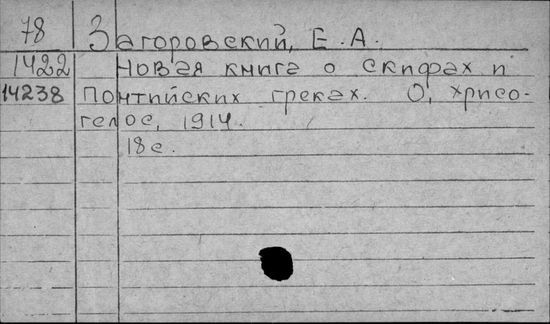 78 Загоровский, Е.А.
1422 Новая книга о скифах и
14238 понтийских греках. О, хрисо-
гелос, 1914.
18с.